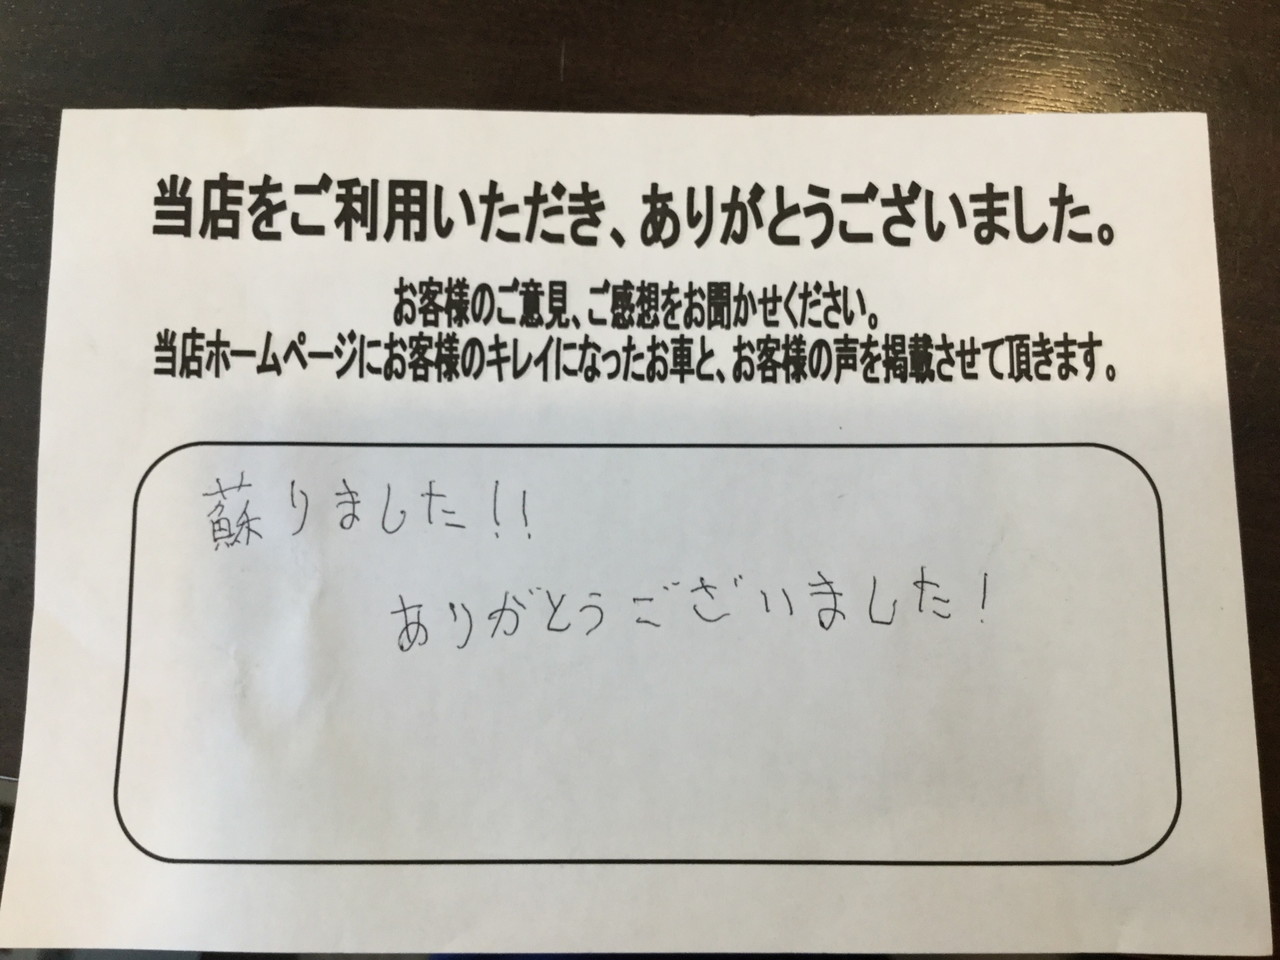 当店をご利用いただき、ありがとうございました。
お客様のご意見、ご感想をお聞かせください。
当店ホームページにお客様のキレイになったお車と、お客様の声を掲載させて頂きます。
蘇りました!!
ありがとうございました!